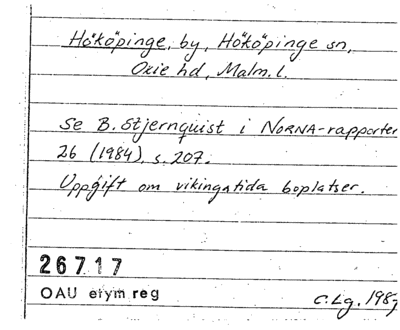 Hököpinge, by, Hököpinge sn,
Oxie hd, Malm. l.
Se B. Stjernquist i NORNA-rapporter
26 (1984), s. 207.
Uppgift om vikingatida boplatser.
26717
OAU etym reg
C.Lg.